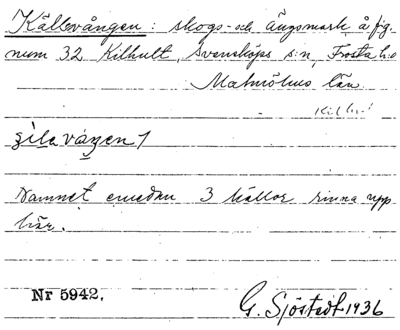 Källevången: skogs- och ängsmark å fig.
num 32 Kilhult, Svensköps s:n, Frosta h:d
Malmöhus län.
Kilhult
Namnet emedan 3 källor rinna upp
här.
Nr 5942. G. Sjöstedt 1936